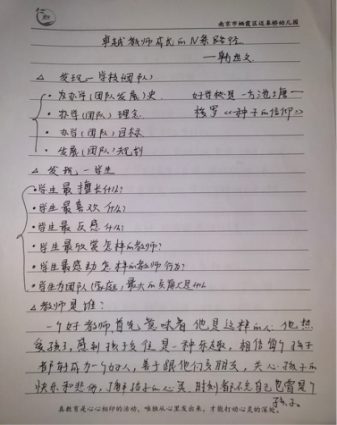 南京市栖霞区迈皋桥幼儿园
卓越教师成长的N条路径
—韩忠文
△ 发现—学校(团队)
• 发办学(团队发展)史
好学校是一方池塘—
• 办学(团队)理念
格罗《种子的信仰》
• 办学(团队)目标
• 发展(团队)规划
△ 发现—学生
• 学生最擅长什么?
• 学生最喜欢什么?
• 学生最反感什么?
• 学生最欣赏怎样的教师?
• 学生最感动怎样的教师行为?
• 学生为团队(家庭)最大的贡献是什么
△ 教师是谁:
一个好教师首先意味着他是这样的人:他热
爱孩子,感到跟孩子交往是一种乐趣,相信每个孩子
都能成为一个好人,善于跟他们交朋友,关心孩子的
快乐和悲伤,了解孩子的心灵,时刻都不忘自己也曾是个
孩子。
真教育是心心相印的活动,唯独从心里发出来,才能打动心灵的深处。